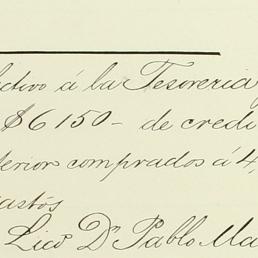 ectivo á la Tesoreria
$6150- de credi
terior comprados á 4,
astos
Licd. Dn Pablo Ma